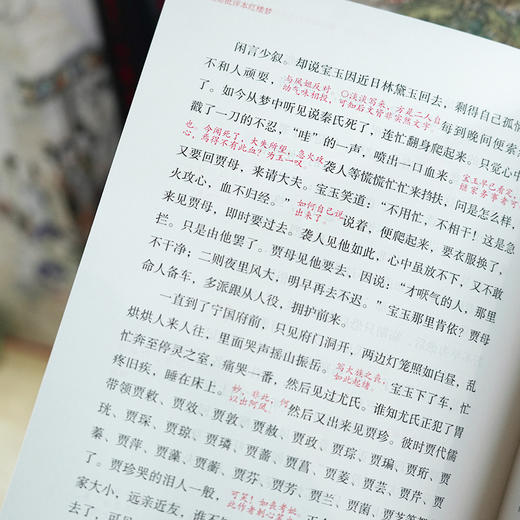 批评本红楼梦
闲言少叙。却说宝玉因近日林黛玉回去，剩得自己孤恓
不和人顽耍，与凤姐反对 〇淡淡写来，方是二人自
幼气味相投，可知后文皆非突然文字 每到晚间便索
了。如今从梦中听见说秦氏死了，连忙翻身爬起来。只觉心中
戳了一刀的不忍，“哇”的一声，喷出一口血来。宝玉早已看定
继家务事者可
也。今闻死了，大失所望，急火攻
心，焉得不有此血？为玉一叹 袭人等慌慌忙忙来挡扶，问是怎么样，
又要回贾母，来请大夫。宝玉笑道：“不用忙，不相干！这是急
火攻心，血不归经。”如何自己说
出来了 说着，便爬起来，要衣服换了，
来见贾母，即时要过去。袭人见他如此，心中虽放不下，又不敢
拦。只是由他罢了。贾母见他要去，因说：“才咽气的人，那里
不干净；二则夜里风大，明早再去不迟。”宝玉那里肯依？贾母
命人备车，多派跟从人役，拥护前来。
一直到了宁国府前，只见府门洞开，两边灯笼照如白昼，乱
烘烘人来人往，里面哭声摇山振岳。写大族之丧，
如此起绪 宝玉下了车，忙
忙奔至停灵之室，痛哭一番，然后见过尤氏。谁知尤氏正犯了胃
疼旧疾，睡在床上。妙，非此，何
以出阿凤 然后又出来见贾珍。彼时贾代儒
带领贾敕、贾效、贾敦、贾赦、贾政、贾琮、贾㻞、贾珩、贾
珖、贾琛、贾琼、贾璘、贾蔷、贾菖、贾菱、贾芸、贾芹、
蓁、贾萍、贾藻、贾蘅、贾芬、贾芳、贾兰、贾菌、贾芝等
了。贾珍哭的泪人一般，可笑！如丧考妣，
此作者刺心笔
家大小，远亲近友，谁不
去了，可见